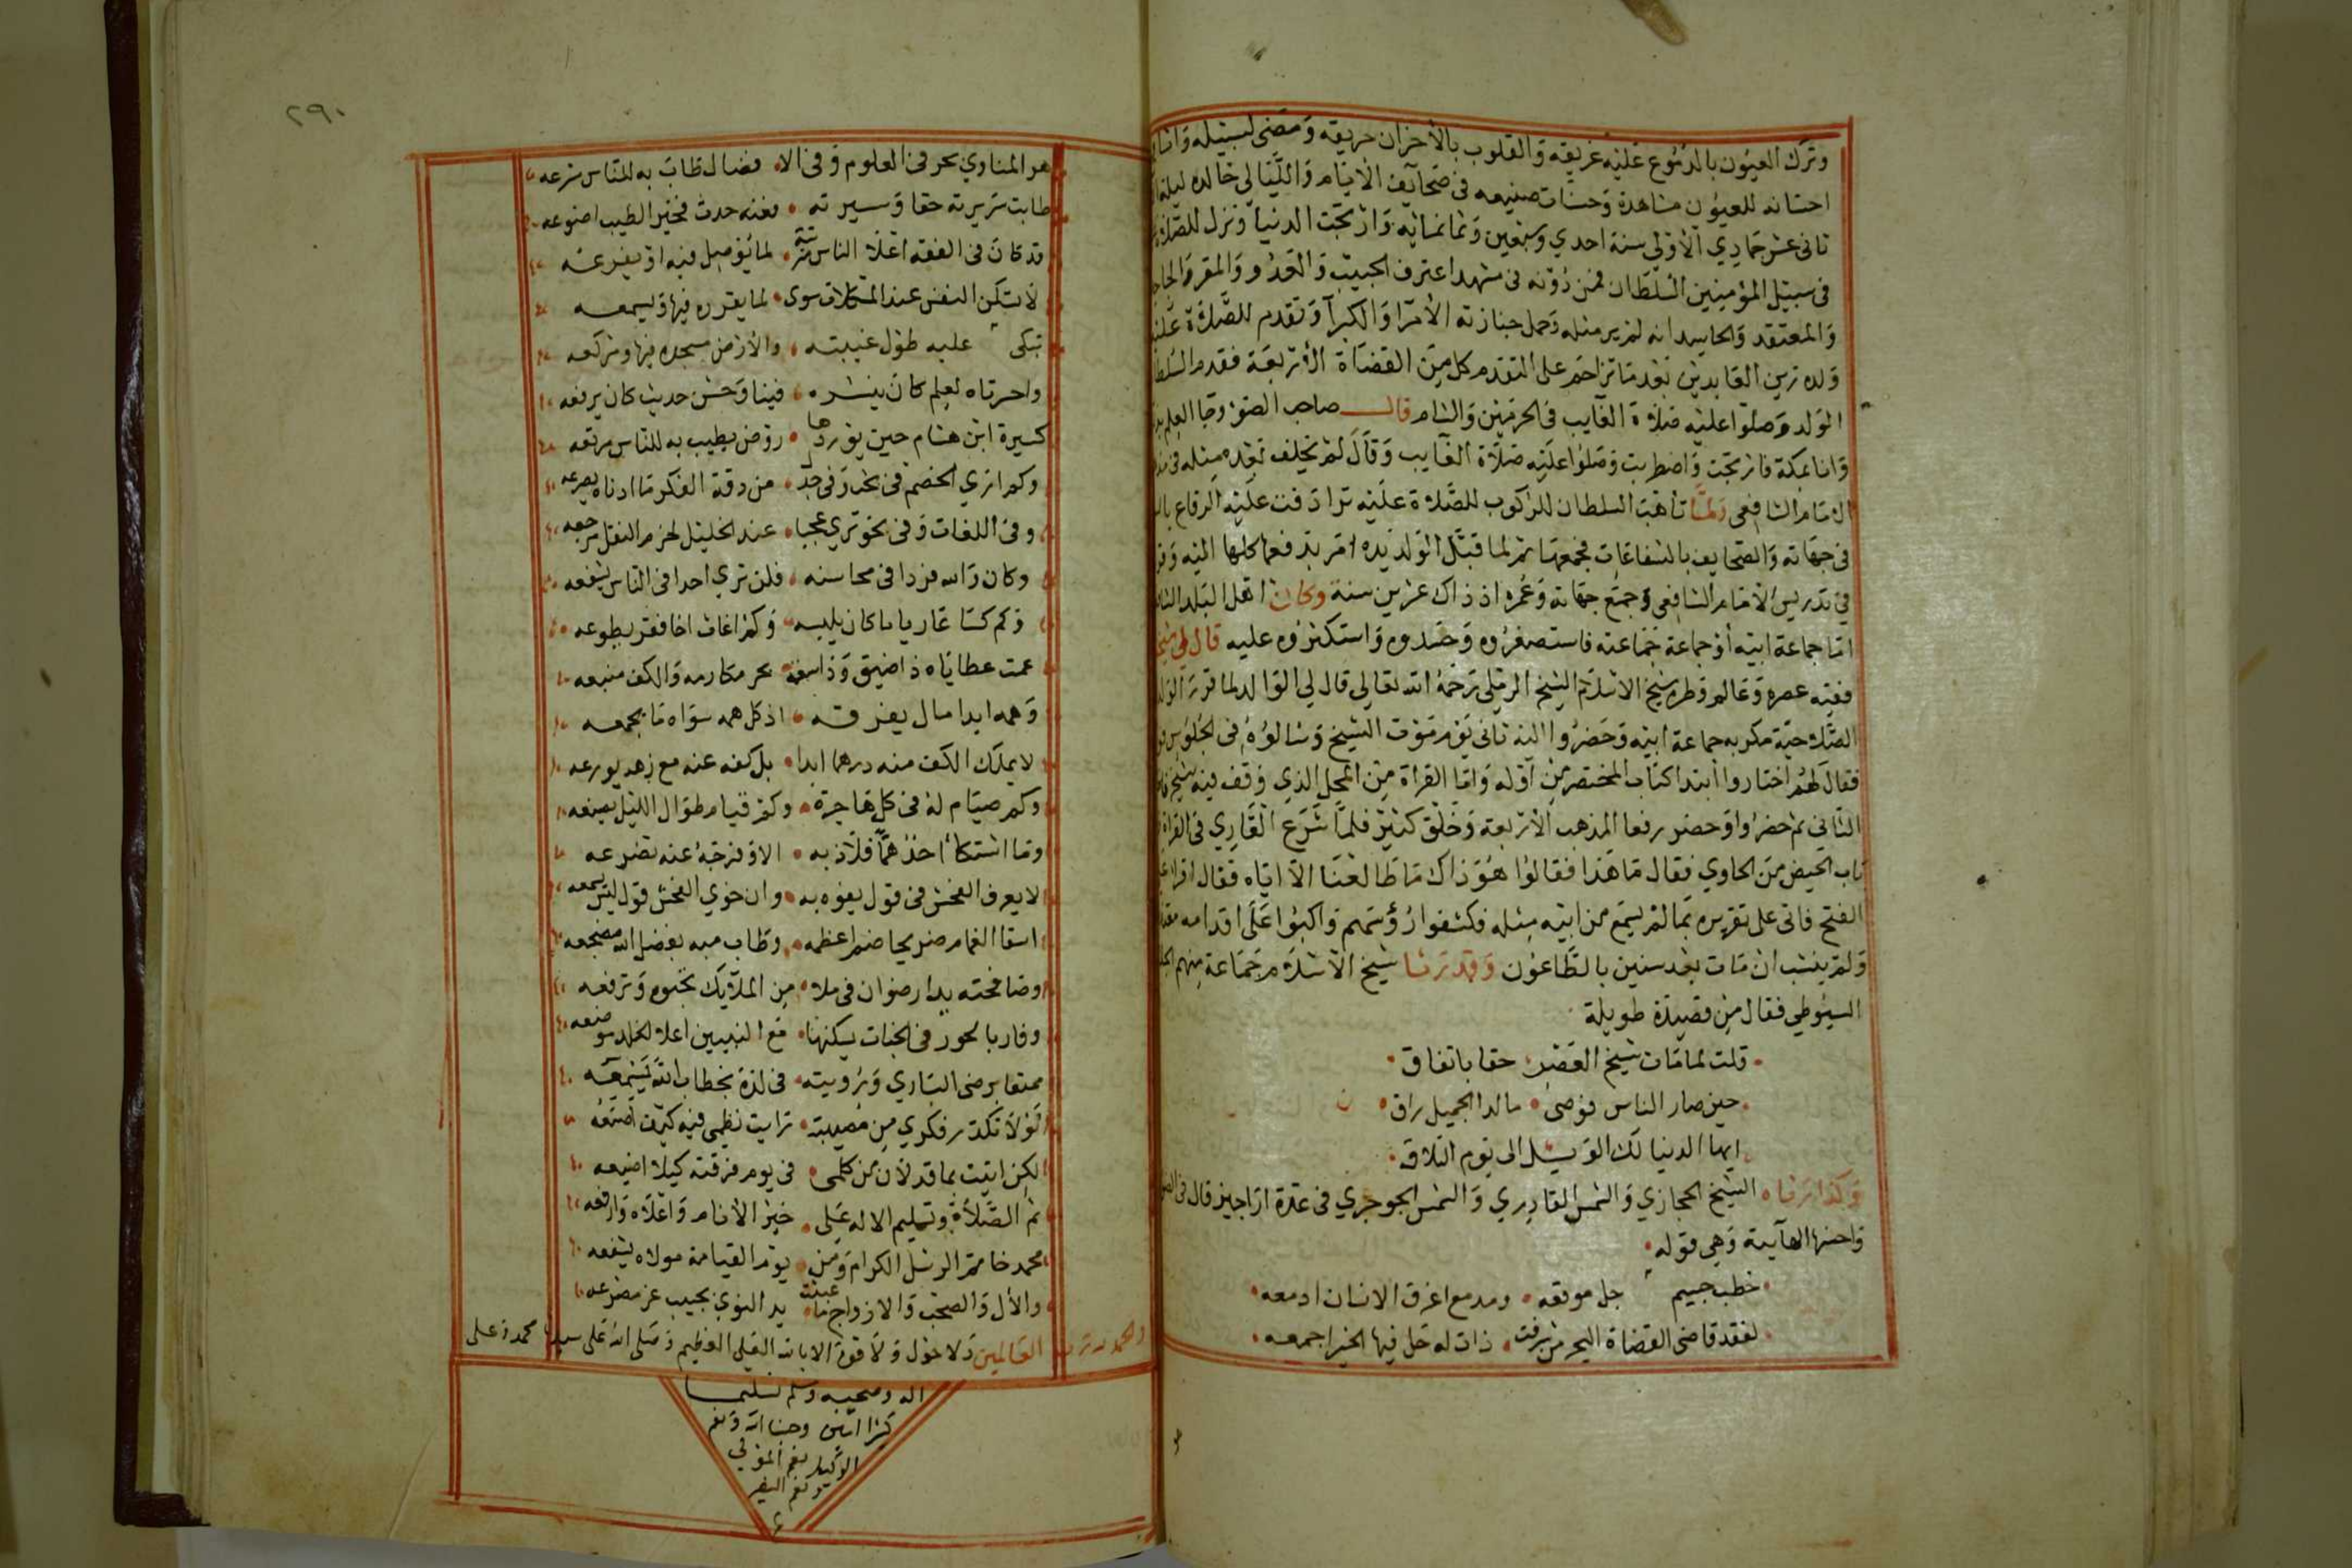 وترك العيون بالدموع عليه غريقه والقلوب بالأحزان حريقه ومضى لسبيله
احسانه للعيون مشاهدة وحسنات صنيعه في صحايف الأيام والليالي خالده ليلة
ثاني عشر جمادي الأولى سنة احدي وسبعين وثمانمائة وارتجت الدنيا ونزل للصلاة
في سبيل المؤمنين السلطان فمن دونه في مشهد اعترف الحبيب والعدو والمقر والجاحد
والمعتقد والحاسد انه لم ير مثله وحمل جنازته الأمرا والكبرآ وتقدم للصلاة عليه
ولده زين العابدين بعد ما تزاحم على التقدم كل من القضاة الأربعة فقدم السلطان
الولد وصلوا عليه صلاة الغايب في الحرمين والشام قال صاحب الضوء وجا العلم
وانا بمكة فارتجت واضطربت وصلوا عليه صلاة الغايب وقال لم يخلف بعده مثله في
الامام الشافعي ولما تأهب السلطان للركوب للصلاة عليه ترادفت عليه الرقاع
في جهاته والصحايف بالشفاعات فجمعها ثم لما قبل الولد يده امر بدفعها كلها اليه
في تدريس الأمام الشافعي وجمع جهاته وعمره اذ ذاك عشرين سنة وكان اهل البلد
اما جماعة ابيه أو جماعة جماعته فاستصغروه وحسدوه واستكثروه عليه قال لي شيخ
فقيه عصره وعالم قطره شيخ الاسلام الشيخ الرملي رحمه الله تعالي قال لي الوالد لما قرر الولد
الصلاحية مكر به جماعة ابيه وحضروا اليه ثاني يوم موت الشيخ وسالوه في الجلوس
فقال لهم اختاروا أبتدا كتاب المختصر من أوله واما القراة من المحل الذي وقف فيه شيخ
الثاني ثم حضروا وحضر رفعا المذهب الأربعة وخلق كثير فلما شرع القاري في القراة
باب الحيض من الحاوي فقال ما هذا فقالوا هو ذاك ما طالعنا الا اياه فقال اقرا
الفتح فاتى على تقريره بما لم يسمع من ابيه مثله فكشفوا رؤسهم واكبوا على اقدامه
ولم ينشب ان مات بعد سنين بالطاعون وقد رثا شيخ الاسلام جماعة منهم
السيوطي فقال من قصيدة طويلة
قلت لما مات شيخ العصر حقا باتفاق
حين صار الناس فوضى ما لدا الجميل راق
ايها الدنيا لك الويل الى يوم التلاق
وكذا رثاه الشيخ الحجازي والشمس القادري والشمس الجوجري في عدة اراجيز قال في
واحسنها الهآيية وهي قوله
خطب جسيم جل موقعه ومدمع اغرق الانسان ادمعه
لفقد قاضي القضاة البحر من شرفت ذات له حل فيها الخير اجمعه
٢٩٠
هو المناوي بحر في العلوم وفي الا فضال طاب به للناس مشرعه
طابت سريرته حقا وسيرته فعنه حدث فخير الطيب اضوعه
قد كان في الفقه اعلا الناس مرتبة لما يؤصل فيه او يفرعه
لا تسكن النفس عند المشكلات سوى لما يقرره فيها ويسمعه
تبكى عليه طول غيبته والأرض مسجده فيها ومركعه
واحسرتاه لعلم كان ينشره فينا وحسن حديث كان يرفعه
كسيرة ابن هشام حين يوردها روض يطيب به للناس مرتعه
وكم اري الخصم في بحث وفي جدل من دقة الفكر ما ادناه يصرعه
وفي اللغات وفي نحو تري عجبا عند الخليل لهزم النقل مرجعه
وكان والله فردا في محاسنه فلن تري احدا في الناس يشفعه
وكم كسا عاريا ما كان يلبسه وكم اغاث اخا فقر يطوعه
عمت عطاياه ذا ضيق وذا سعة بحر مكارمه والكف منبعه
وهمه ابدا مال يفرقه اذ كل همه سواه ما يجمعه
لا يملك الكف منه درهما ابدا بل كفه عنه مع زهد يورعه
وكم صيام له في كل هاجرة وكم قيام طوال الليل يصنعه
وما اشتكا أحد هما فلاذ به الا وفرجه عنه تضرعه
لا يعرف الفحش في قول يفوه به وان حوي الفحش قول ليس يسمعه
اسقا الغمام ضريحا ضم اعظمه وطاب ميه بفضل الله مضجعه
وصافحته يدا رضوان في ملا من الملايك تحبوه وترفعه
وفاز بالحور في الجنات يسكنها مع النبيين اعلا الخلد موضعه
ممتعا برضى الباري ورويته في لذة بخطاب الله يسمعه
لولا تكدر فكري من مصيبته رايت نظمي فيه كيف اصنعه
لكن اتيت بما قد لان من كلمى في يوم فرقته كيلا اضيعه
ثم الصلاة وتسليم الاله على خير الأنام واعلاه وارفعه
محمد خاتم الرسل الكرام ومن يوم القيامة مولاه يشفعه
والأل والصحب والازواج ما عبثت يد النوي بحبيب عز مضرعه
والحمد لله رب العالمين ولا حول ولا قوة الا بالله العلي العظيم وصلى الله على سيدنا محمد وعلى
اله وصحبه وسلم تسليما
كثيرا امين وحسبنا الله ونعم
الوكيل نعم المولي
ونعم النصير